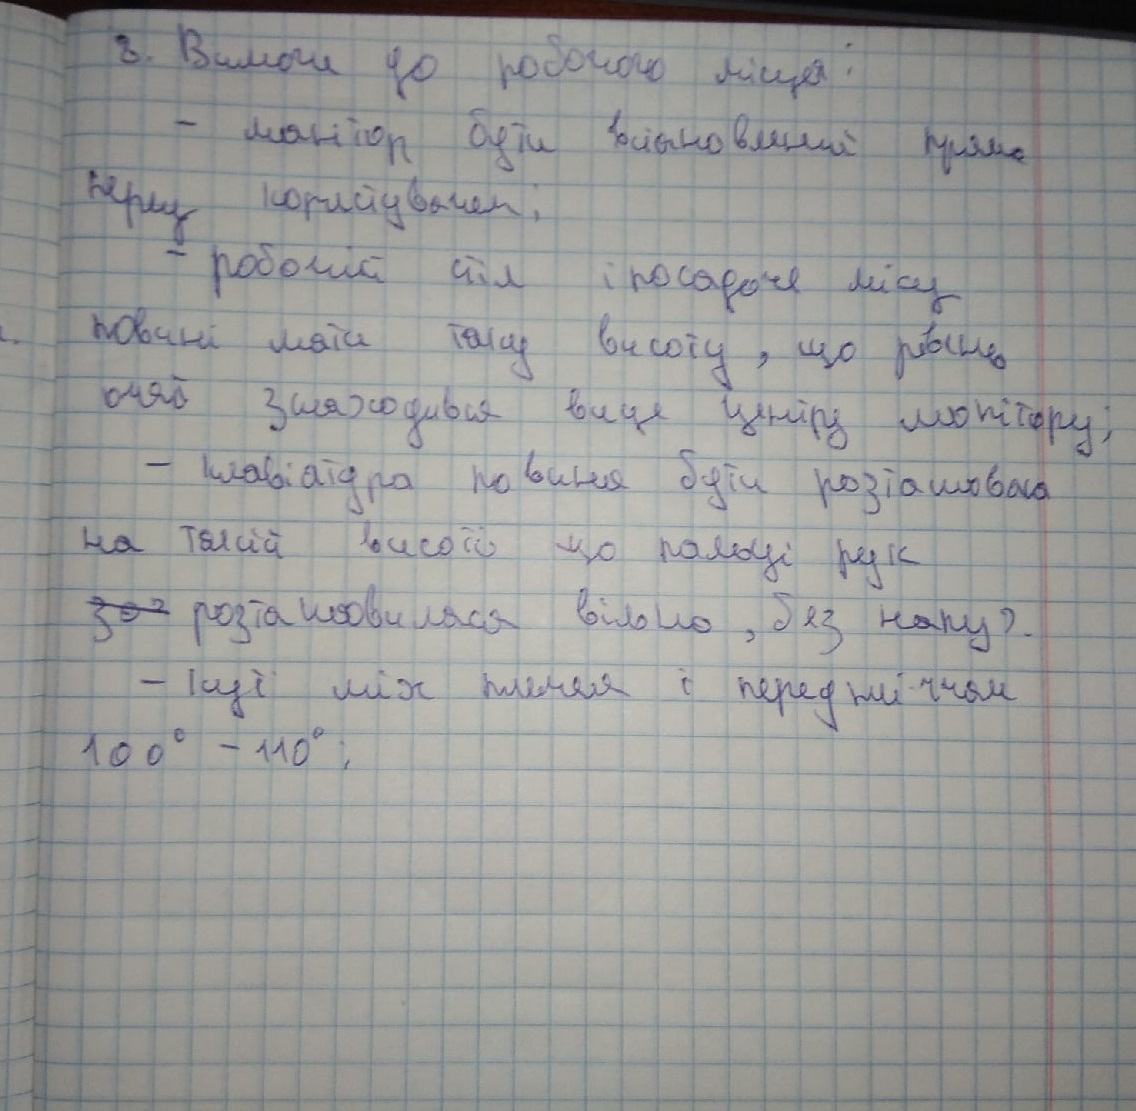 3. Вимоги до робочого місця:
- монітор бути встановлений прямо
перед користувачем;
- робочий стіл і посадоче місц
повині мати таку висоту, що рівень
очей знаходився вище центру монітору;
- клавіатура повиня бути розташована
на такій висоті що пальці рук
розташовилася вільно, без напу
- Куті між плечем і передпліччам
100° - 110°;